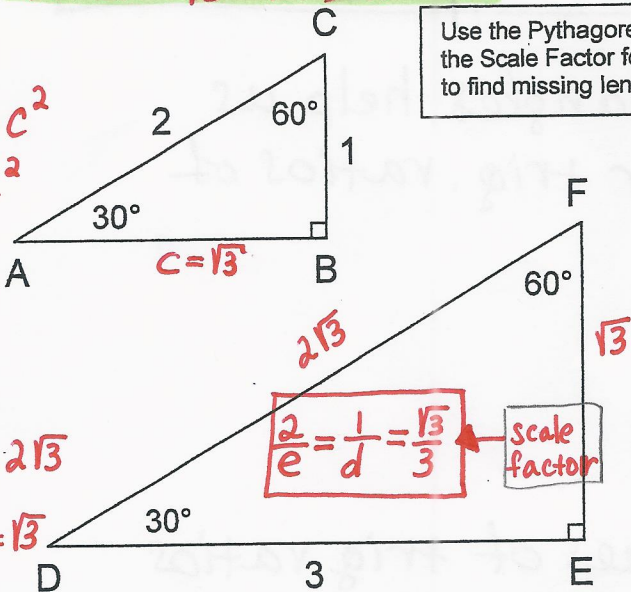 C
Use the Pythagore
the Scale Factor fo
to find missing len
c²
2
2
60°
1
30°
A
c=√3
B
F
60°
2√3
√3
2/e = 1/d = √3/3
scale
factor
2√3
30°
=√3
D
3
E